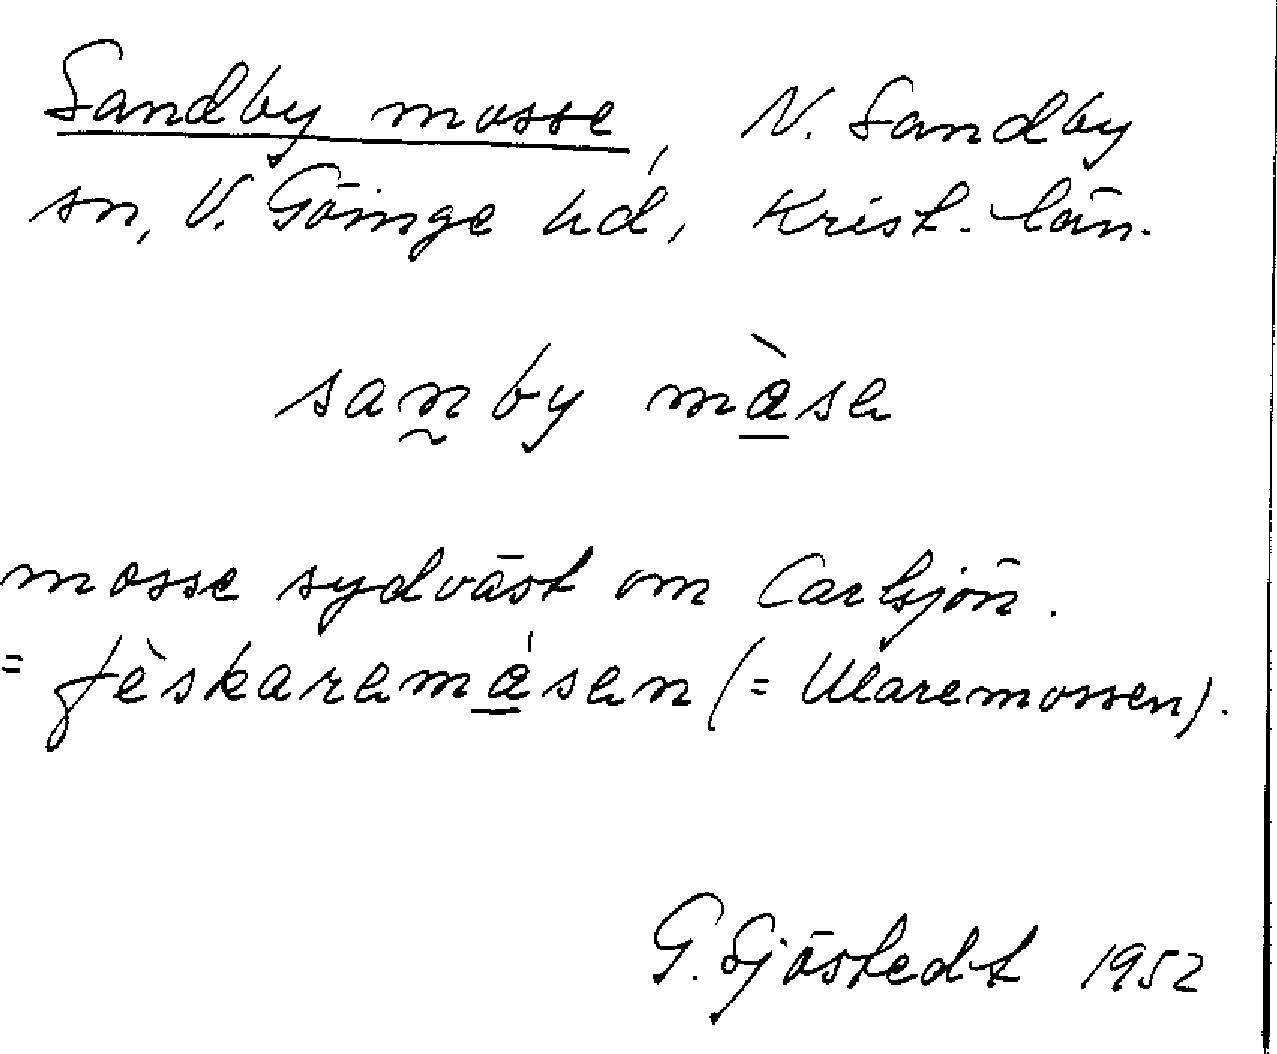 Sandby mosse, N. Sandby
sn, V. Göinge hd, Krist. län.
sanby màsə
mosse sydväst om Carlsjön.
= fèskarəmásən (= Ularemossen).
G. Sjöstedt 1952